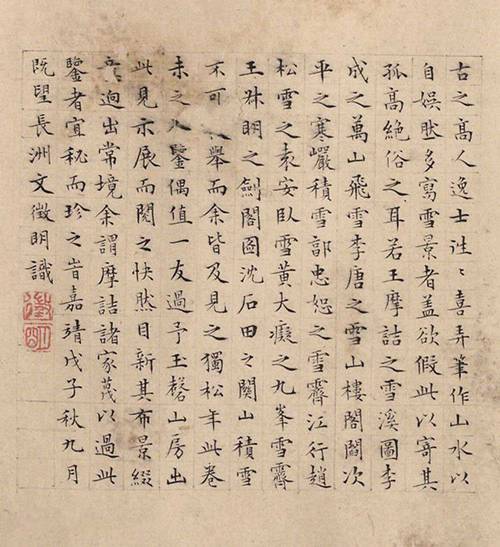 古之高人逸士往々喜弄筆作山水以
自娛然多寫雪景者蓋欲假此以寄其
孤高絕俗之耳若王摩詰之雪溪圖李
成之萬山飛雪李唐之雪山樓閣閻次
平之寒巖積雪郭忠恕之雪霽江行趙
松雪之袁安臥雪黃大癡之九峯雪霽
王叔明之劍閣圖沈石田之關山積雪
不可舉而余皆及見之獨松年此卷
未之入鑒偶值一友過予玉磬山房出
此見示展而閱之快然目新其布景綴
迥出常境余謂摩詰諸家蔑以過此
鑒者宜秘而珍之旹嘉靖戊子秋九月
既望長洲文徵明識
徵明